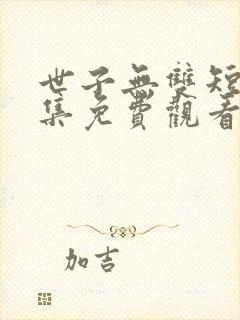 世子無雙短
集免費觀看
加吉